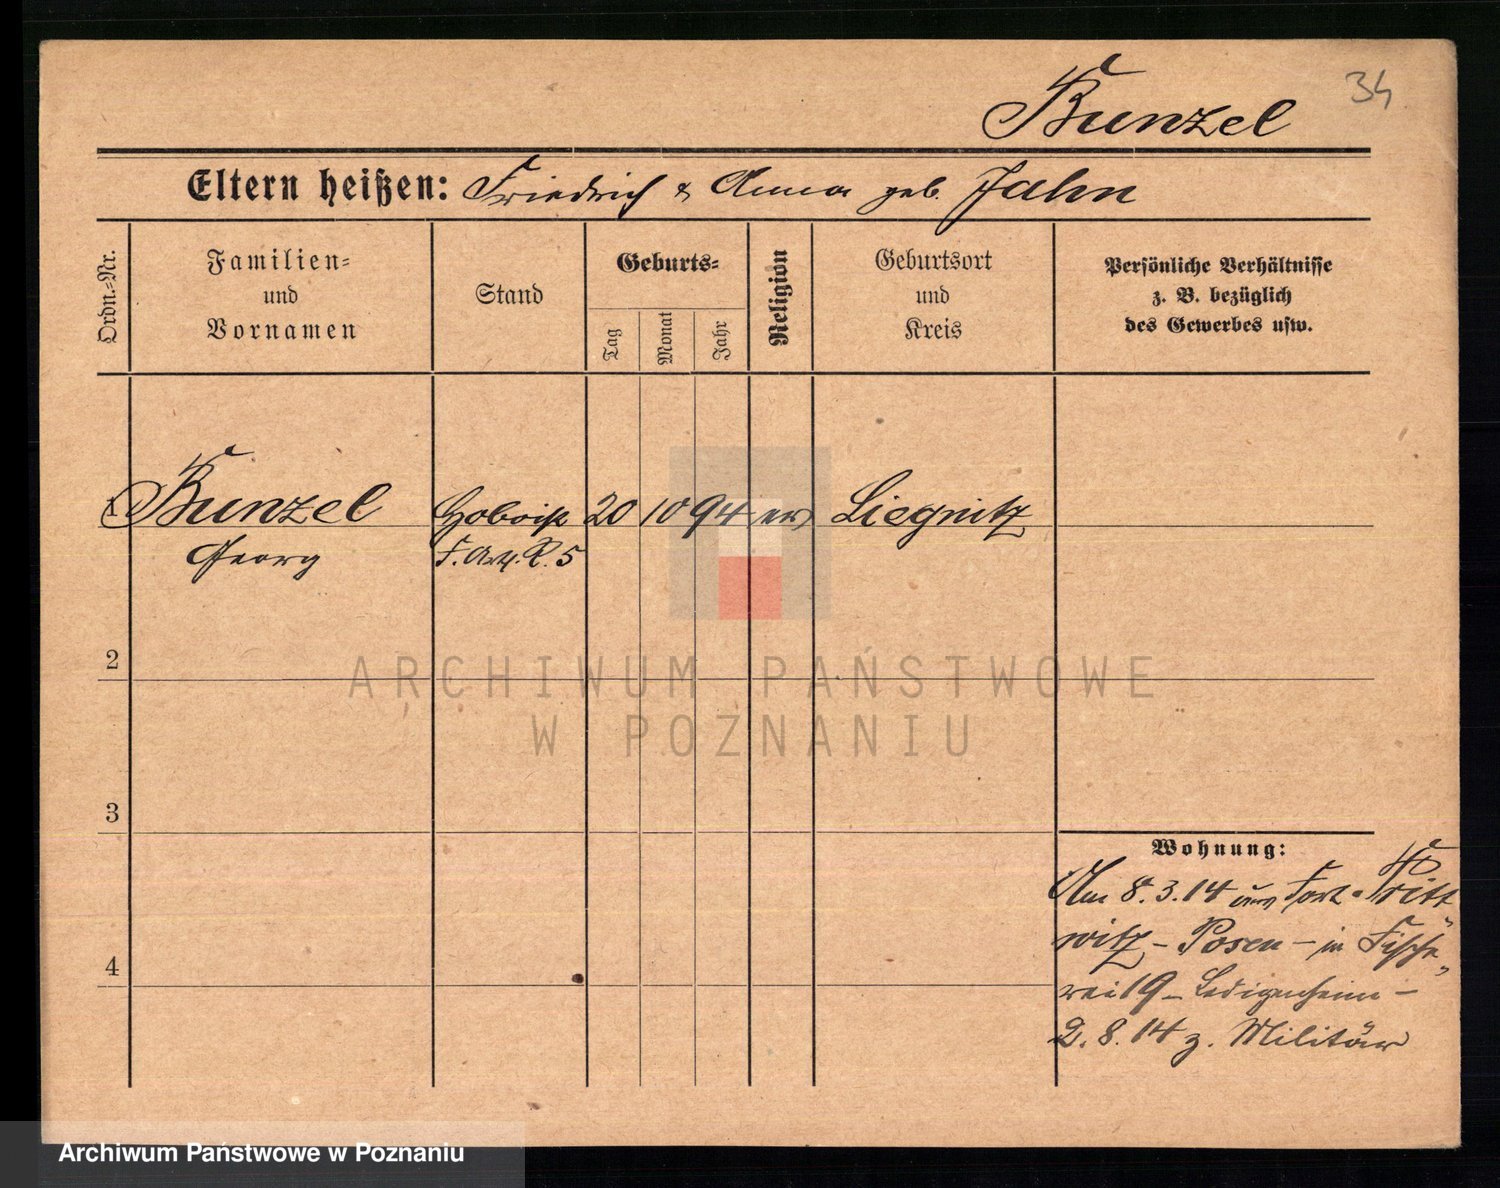 34
Bunzel
Eltern heißen: Friedrich & Anna geb. Jahn
Ordn.-Nr.
Familien-
und
Vornamen
Stand
Geburts-
Tag
Monat
Jahr
Religion
Geburtsort
und
Kreis
Persönliche Verhältnisse
z. B. bezüglich
des Gewerbes usw.
1
Bunzel
Georg
Hoboist
F. Art. R. 5
20
10
94
ev
Liegnitz
2
3
4
Wohnung:
Am 8.3.14 von Fort-Pritt
witz - Posen - in Fische
rei 19 - Ledigenheim -
2.8.14 z. Militär
ARCHIWUM PAŃSTWOWE
W POZNANIU
Archiwum Państwowe w Poznaniu